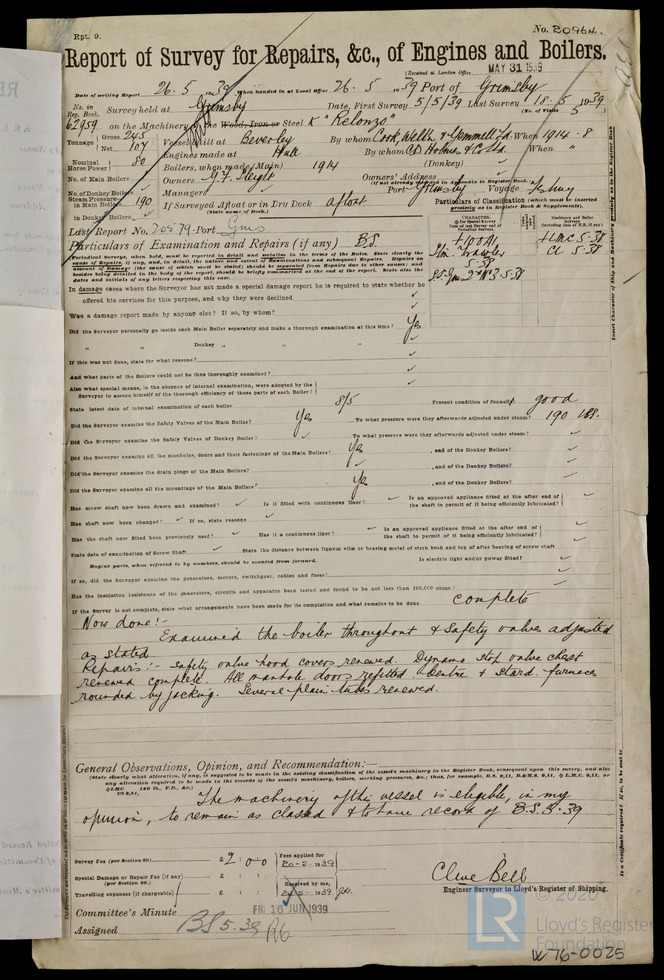 Rpt. 9.
No. 20964.
Report of Survey for Repairs, &c., of Engines and Boilers.
(Received at London Office MAY 31 1939
Date of writing Report 26.5.1939 When handed in at Local Office 26.5.1939 Port of Grimsby
No. in Reg. Book. Survey held at Grimsby Date, First Survey 5/5/39 Last Survey 18.5.1939
(No. of Visits 5)
62959 on the Machinery of the Wood, Iron or Steel K "Relonzo"
Tonnage Gross 245 Net 107 Vessel built at Beverley By whom Cook, Welton & Gemmell Ld. When 1914.8
Engines made at Hull By whom C.D. Holmes & Co Ltd. When "
Nominal Horse Power 80 Boilers, when made (Main) 1914 (Donkey) ✓
No. of Main Boilers Owners G.F. Sleight Owners' Address
(if not already recorded in Appendix to Register Book.)
No. of Donkey Boilers Managers Port Grimsby Voyage Fishing
Steam Pressure in Main Boilers 190 If Surveyed Afloat or in Dry Dock afloat
(State name of Dock.)
in Donkey Boilers
Particulars of Classification (which must be inserted precisely as in Register Book & Supplements).
Last Report No. 20579 Port Gms
Particulars of Examination and Repairs (if any) B.S.
+100A1
Stm Trawler
5.38
+LMC 5.38
CL 5.38
In damage cases where the Surveyor has not made a special damage report he is required to state whether he
offered his services for this purpose, and why they were declined ✓
Was a damage report made by anyone else? If so, by whom? ✓
Did the Surveyor personally go inside each Main Boiler separately and make a thorough examination at this time? Yes
" " Donkey " " " ✓
If this was not done, state for what reasons? ✓
And what parts of the Boilers could not be thus thoroughly examined? ✓
Also what special means, in the absence of internal examination, were adopted by the
Surveyor to assure himself of the thorough efficiency of those parts of each Boiler? ✓
State latest date of internal examination of each boiler 8/5 Present condition of funnel good
Did the Surveyor examine the Safety Valves of the Main Boiler? Yes To what pressure were they afterwards adjusted under steam? 190 lbs.
Did the Surveyor examine the Safety Valves of Donkey Boiler? ✓ To what pressure were they afterwards adjusted under steam? ✓
Did the Surveyor examine all the manholes, doors and their fastenings of the Main Boilers? Yes, and of the Donkey Boilers? ✓
Did the Surveyor examine the drain plugs of the Main Boilers? ✓, and of the Donkey Boilers? ✓
Did the Surveyor examine all the mountings of the Main Boilers? Yes, and of the Donkey Boilers? ✓
Has screw shaft now been drawn and examined? ✓ Is it fitted with continuous liner? ✓ Is an approved appliance fitted at the after end of the shaft to permit of it being efficiently lubricated? ✓
Has shaft now been changed? ✓ If so, state reasons ✓
Has the shaft now fitted been previously used? ✓ Has it a continuous liner? ✓ Is an approved appliance fitted at the after end of the shaft to permit of it being efficiently lubricated? ✓
State date of examination of Screw Shaft ✓ State the distance between lignum vitæ or bearing metal of stern bush and top of after bearing of screw shaft ✓
Engine parts, when referred to by numbers, should be counted from forward. Is electric light and/or power fitted? ✓
If so, did the Surveyor examine the generators, motors, switchgear, cables and fuses? ✓
Has the insulation resistance of the generators, circuits and apparatus been tested and found to be not less than 100,000 ohms? ✓
If the Survey is not complete, state what arrangements have been made for its completion and what remains to be done complete
Now done:-
Examined the boiler throughout & Safety valves adjusted
as stated
Repairs:- Safety valve hood covers renewed. Dynamo stop valve chest
renewed complete. All manhole doors refitted. Centre & Stard. furnaces
rounded by jacking. Several plain tubes renewed.
General Observations, Opinion, and Recommendation:—
(State clearly what alteration, if any, is suggested to be made in the existing classification of the vessel's machinery in the Register Book, consequent upon this survey, and also
any alteration required to be made in the records of the vessel's machinery, boilers, working pressures, &c.; thus, for example, B.S. 9,11, B.&M.S. 9,11, L.M.C. 9,11, or
The machinery of this vessel is eligible, in my
opinion, to remain as classed & to have record of B.S. 5.39
Survey Fee (per Section 29) £ 2 : 0 : 0 Fees applied for 20-5-1939
Special Damage or Repair Fee (if any) (per Section 29.) £ : :
Travelling expenses (if chargeable) £ : : Received by me, 1939
Clive Bell
Engineer Surveyor to Lloyd's Register of Shipping.
Committee's Minute FRI 16 JUN 1939
Assigned BS 5.39
Insert Character of Ship and Machinery precisely as in the Register Book
© 2020
LR Lloyd's Register Foundation
W76-0025